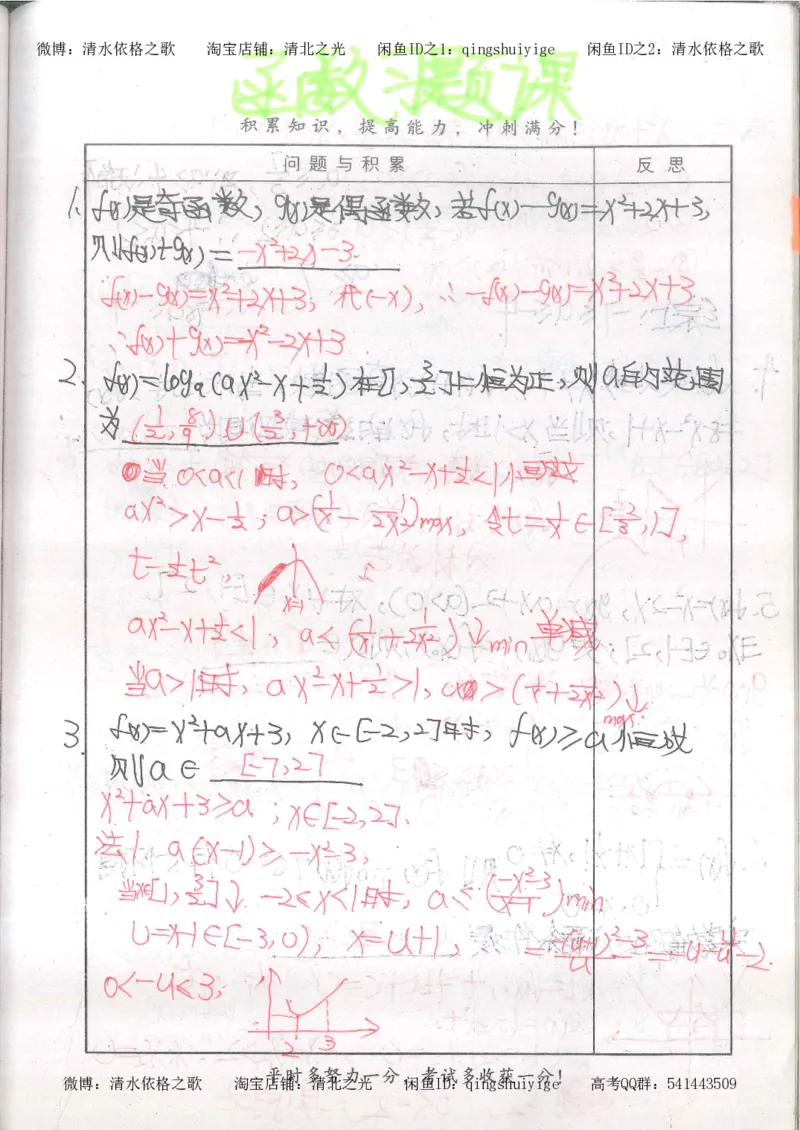 微博：清水依格之歌 淘宝店铺：清北之光 闲鱼ID之1：qingshuiyige 闲鱼ID之2：清水依格之歌
函数习题课
积累知识，提高能力，冲刺满分！
问题与积累 反思
1. f(x)是奇函数，g(x)是偶函数，若f(x)-g(x)=x²+2x+3，
则f(x)+g(x)=-x²+2x-3.
f(x)-g(x)=x²+2x+3，代(-x)，∴-f(x)-g(x)=x²+2x+3
∴f(x)+g(x)=x²-2x+3
2. f(x)=logₐ(ax²-x+1/2)在[1,3/2]上恒为正，则a的范围
为(1/2,8/9)∪(3/2,+∞)
①当0<a<1时，0<ax²-x+1/2<1恒成立
ax²>x-1/2；a>(1/x-1/2x²)max，令t=1/x∈[2/3,1]，
t-1/2t²，
x=1
ax²-x+1/2<1，a<(1/x+1/2x²)↓min 单减
当a>1时，ax²-x+1/2>1，a>(1/x+1/2x²)↓
max.
3. f(x)=x²+ax+3，x∈[-2,2]时，f(x)≥a恒成
则a∈[-7,2]
x²+ax+3≥a；x∈[-2,2].
法1. a(x-1)≥-x²-3，
当x∈[1,3/2]↓. -2≤x<1时，a≤(-x²-3/x-1)min
u=x-1∈[-3,0)，x=u+1，∴=-(u+1)²-3/u=-u-4/u-2.
0<-u≤3；
2 3
平时多努力一分，考试多收获一分！
微博：清水依格之歌 淘宝店铺：清北之光 闲鱼ID：qingshuiyige 高考QQ群：541443509